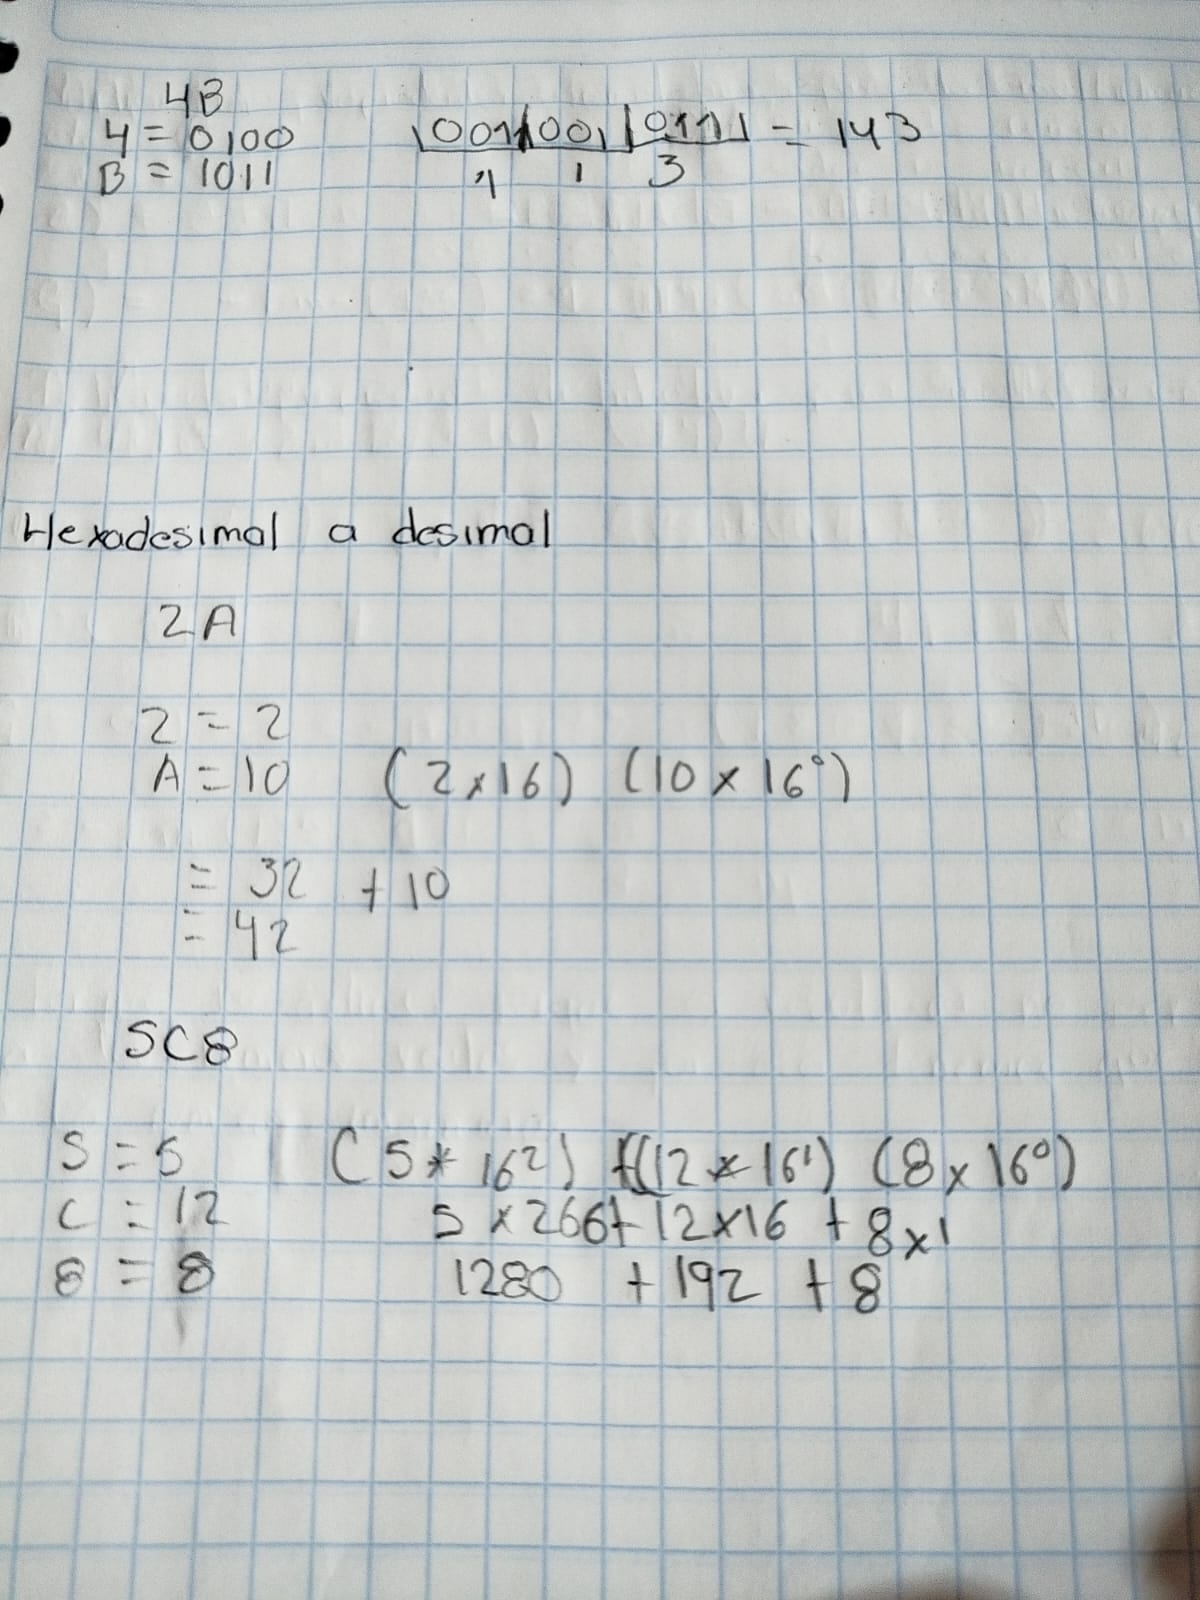 4B
4 = 0100
B = 1011
001|001|0111 = 143
1 1 3
Hexadesimal a desimal
2A
2 = 2
A = 10 (2x16) (10 x 16°)
= 32 + 10
= 42
5C8
5 = 5 (5* 16²) +((12 x 16¹) (8 x 16⁰)
C = 12 5 x 266+ 12x16 + 8x1
8 = 8 1280 + 192 + 8